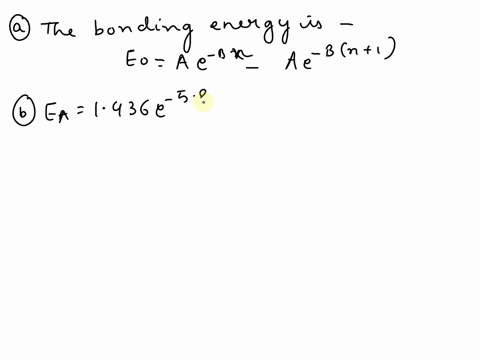 (a) The bonding energy is —
E0 = A e^{-Bn} - A e^{-B(n+1)}
(b) E_A = 1.436 e^{-5.8